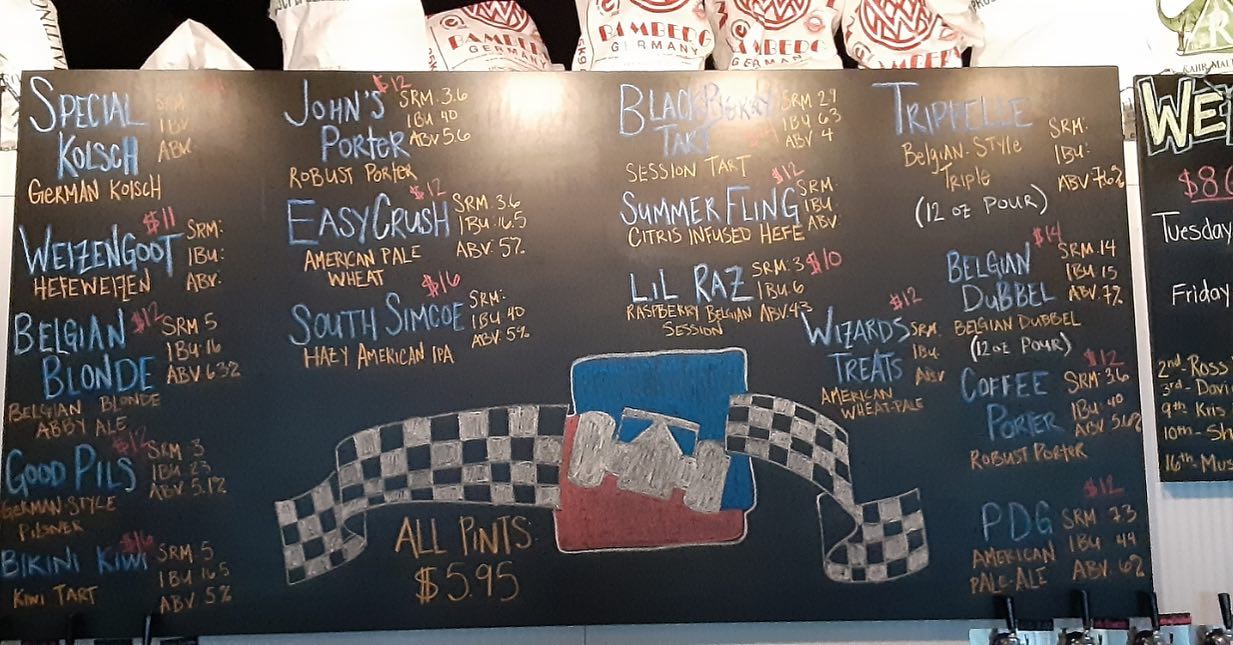 BAMBERG
GERMANY
BAMBERG
GERMANY
BAMBERG
GERMANY
BAMBERG
SPECIAL
KOLSCH
SRM
IBU
ABV
GERMAN KOLSCH
$11
WEIZENGOOT
SRM:
IBU:
ABV:
HEFEWEIZEN
BELGIAN
BLONDE
$12
SRM 5
IBU: 16
ABV 6.3%
BELGIAN BLONDE
ABBY ALE
$12
GOOD PILS
SRM 3
IBU 23
ABV 5.1%
GERMAN-STYLE
PILSNER
BIKINI KIWI
SRM: 5
IBU 16.5
ABV 5%
KIWI TART
$12
JOHN'S
PORTER
SRM: 36
IBU 40
ABV 5.6
ROBUST PORTER
$12
EASY CRUSH
SRM 3.6
IBU 16.5
ABV: 5%
AMERICAN PALE
WHEAT
$16
SOUTH SIMCOE
SRM:
IBU 40
ABV: 5%
HAZY AMERICAN IPA
BLACKBERRY
TART
SRM 29
IBU 63
ABV 4
SESSION TART
$12
SUMMER FLING
SRM
IBU
ABV:
CITRIS INFUSED HEFE
$10
LIL RAZ
SRM: 3
IBU: 6
ABV 4.3
RASPBERRY BELGIAN
SESSION
$12
WIZARDS
TREATS
SRM:
IBU:
ABV
AMERICAN
WHEAT-PALE
TRIPFELLE
SRM:
IBU:
ABV 7.6%
BELGIAN-STYLE
TRIPLE
(12 OZ POUR)
$14
BELGIAN
DUBBEL
SRM. 14
IBU 15
ABV. 7%
BELGIAN DUBBEL
(12 OZ POUR)
$12
COFFEE
PORTER
SRM: 36
IBU: 40
ABV 5.6%
ROBUST PORTER
$12
PDG
SRM 7.3
IBU 44
ABV. 6%
AMERICAN
PALE-ALE
ALL PINTS:
$5.95
WE
$8
Tuesday
Friday
2nd- Ross
3rd- Davi
9th Kris
10th- Sh
16th- Mus